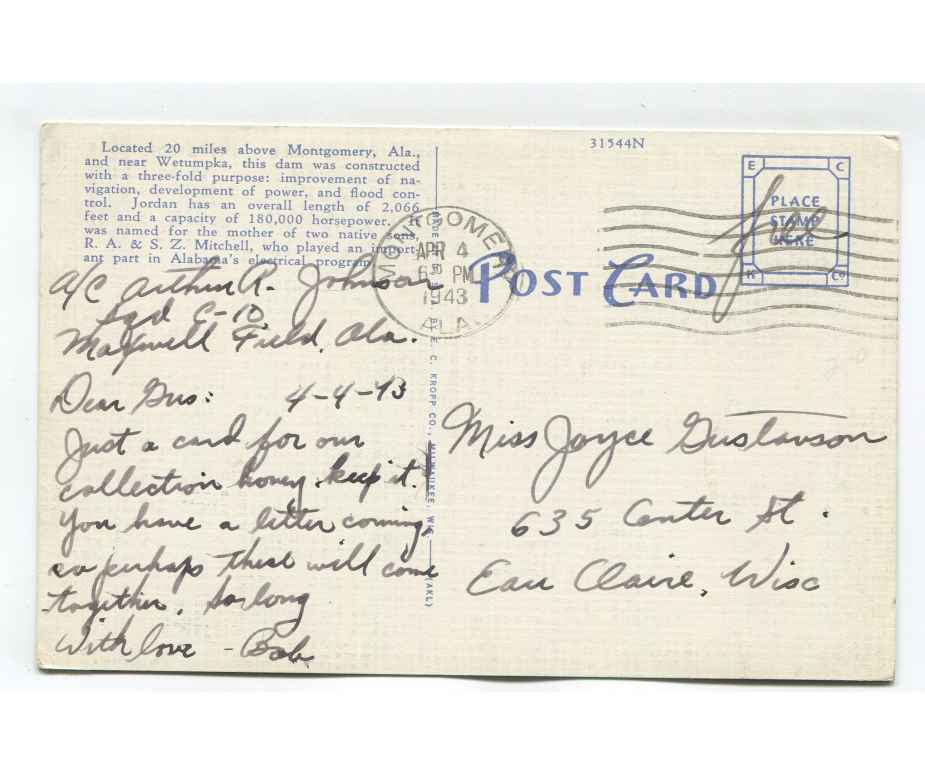 Located 20 miles above Montgomery, Ala.,
and near Wetumpka, this dam was constructed
with a three-fold purpose: improvement of na-
vigation, development of power, and flood con-
trol. Jordan has an overall length of 2,066
feet and a capacity of 180,000 horsepower. It
was named for the mother of two native sons,
R. A. & S. Z. Mitchell, who played an import-
ant part in Alabama's electrical program.
A/C Arthur R. Johnson
Sqd C-10
Maxwell Field, Ala.
Dear Gus: 4-4-43
Just a card for our
collection honey, keep it.
You have a letter coming
so perhaps these will come
together. So long
With love - Bob
E. C. KROPP CO., MILWAUKEE, WIS.
(AKL)
31544N
MONTGOMERY
APR 4
PM
1943
ALA.
POST CARD
E C
PLACE
STAMP
HERE
K Co
free
Miss Joyce Gustavson
635 Center St.
Eau Claire, Wisc